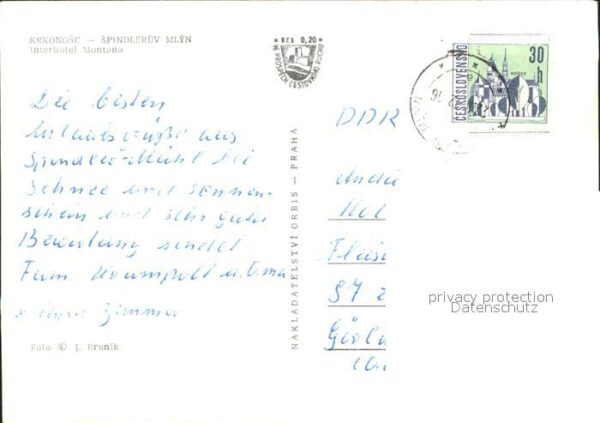 KRKONOŠE — ŠPINDLERŮV MLÝN
Interhotel Montana
* KCS 0,20 *
VE PROSPĚCH CESTOVNÍHO RUCHU
ČESKOSLOVENSKO
30 h
Die besten
Urlaubsgrüße aus
Spindler-Mühl bei
Schnee und Sonnen-
schein und sehr guter
Bewirtung sendet
Fam. u. Oma
NAKLADATELSTVÍ ORBIS — PRAHA
DDR
Fleis
Görli
privacy protection
Datenschutz
Foto © J. Bruník